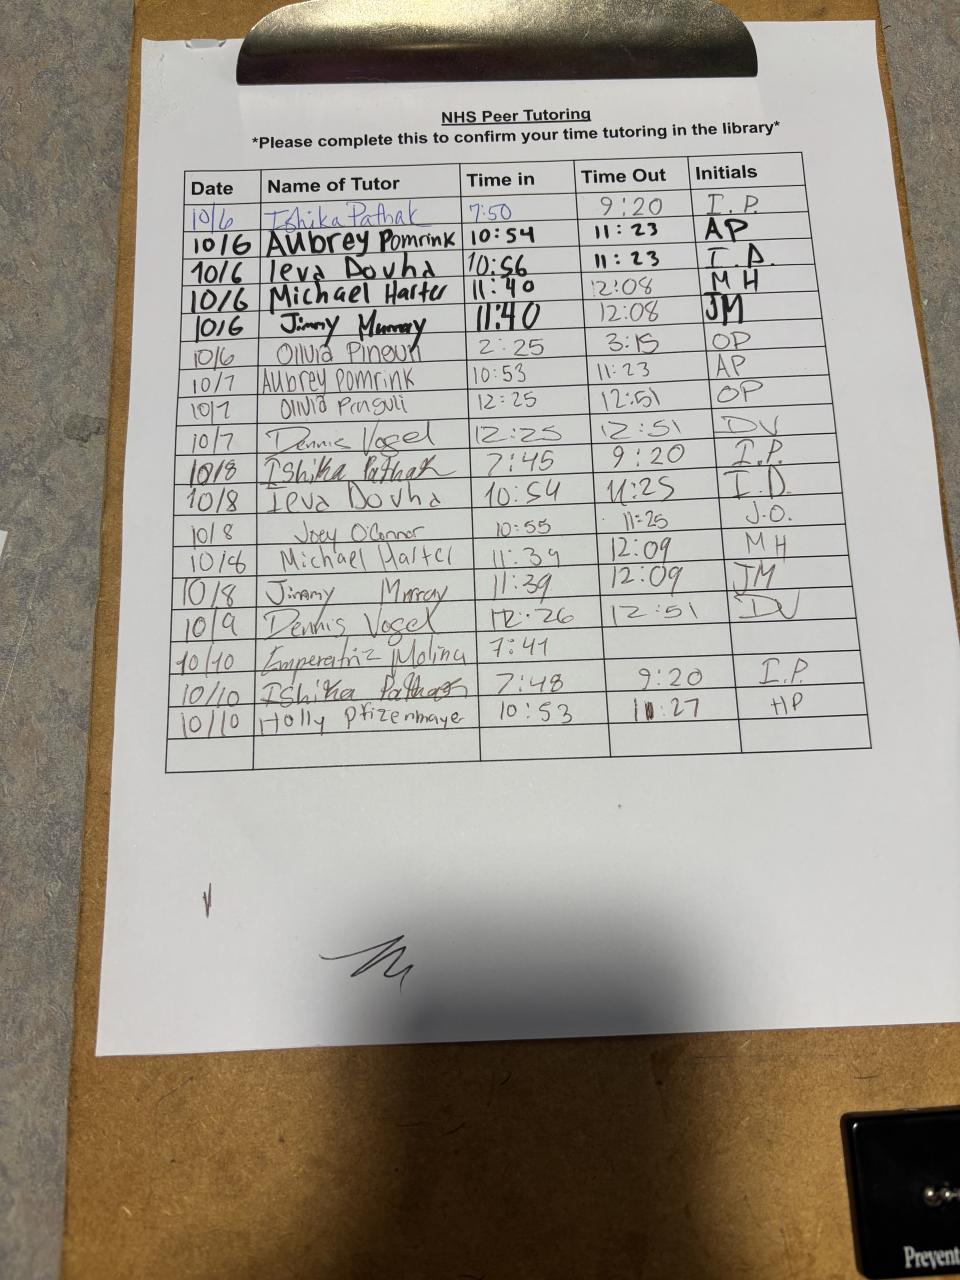 NHS Peer Tutoring
*Please complete this to confirm your time tutoring in the library*
Date Name of Tutor Time in Time Out Initials
10/6 Ishika Pathak 7:50 9:20 I.P.
10/6 Aubrey Pomrink 10:54 11:23 AP
10/6 Ieva Dovha 10:56 11:23 I.D.
10/6 Michael Harter 11:40 12:08 MH
10/6 Jimmy Murray 11:40 12:08 JM
10/6 Olivia 2:25 3:15 OP
10/7 Aubrey Pomrink 10:53 11:23 AP
10/7 Olivia 12:25 12:51 OP
10/7 Dennis Vogel 12:25 12:51 DV
10/8 Ishika Pathak 7:45 9:20 I.P.
10/8 Ieva Dovha 10:54 11:25 I.D.
10/8 Joey O'Connor 10:55 11:25 J.O.
10/8 Michael Harter 11:39 12:09 MH
10/8 Jimmy Murray 11:39 12:09 JM
10/9 Dennis Vogel 12:26 12:51 DV
10/10 Imperatriz Molina 7:41
10/10 Ishika Pathak 7:48 9:20 I.P.
10/10 Holly Pfizenmayer 10:53 11:27 HP
Prevent